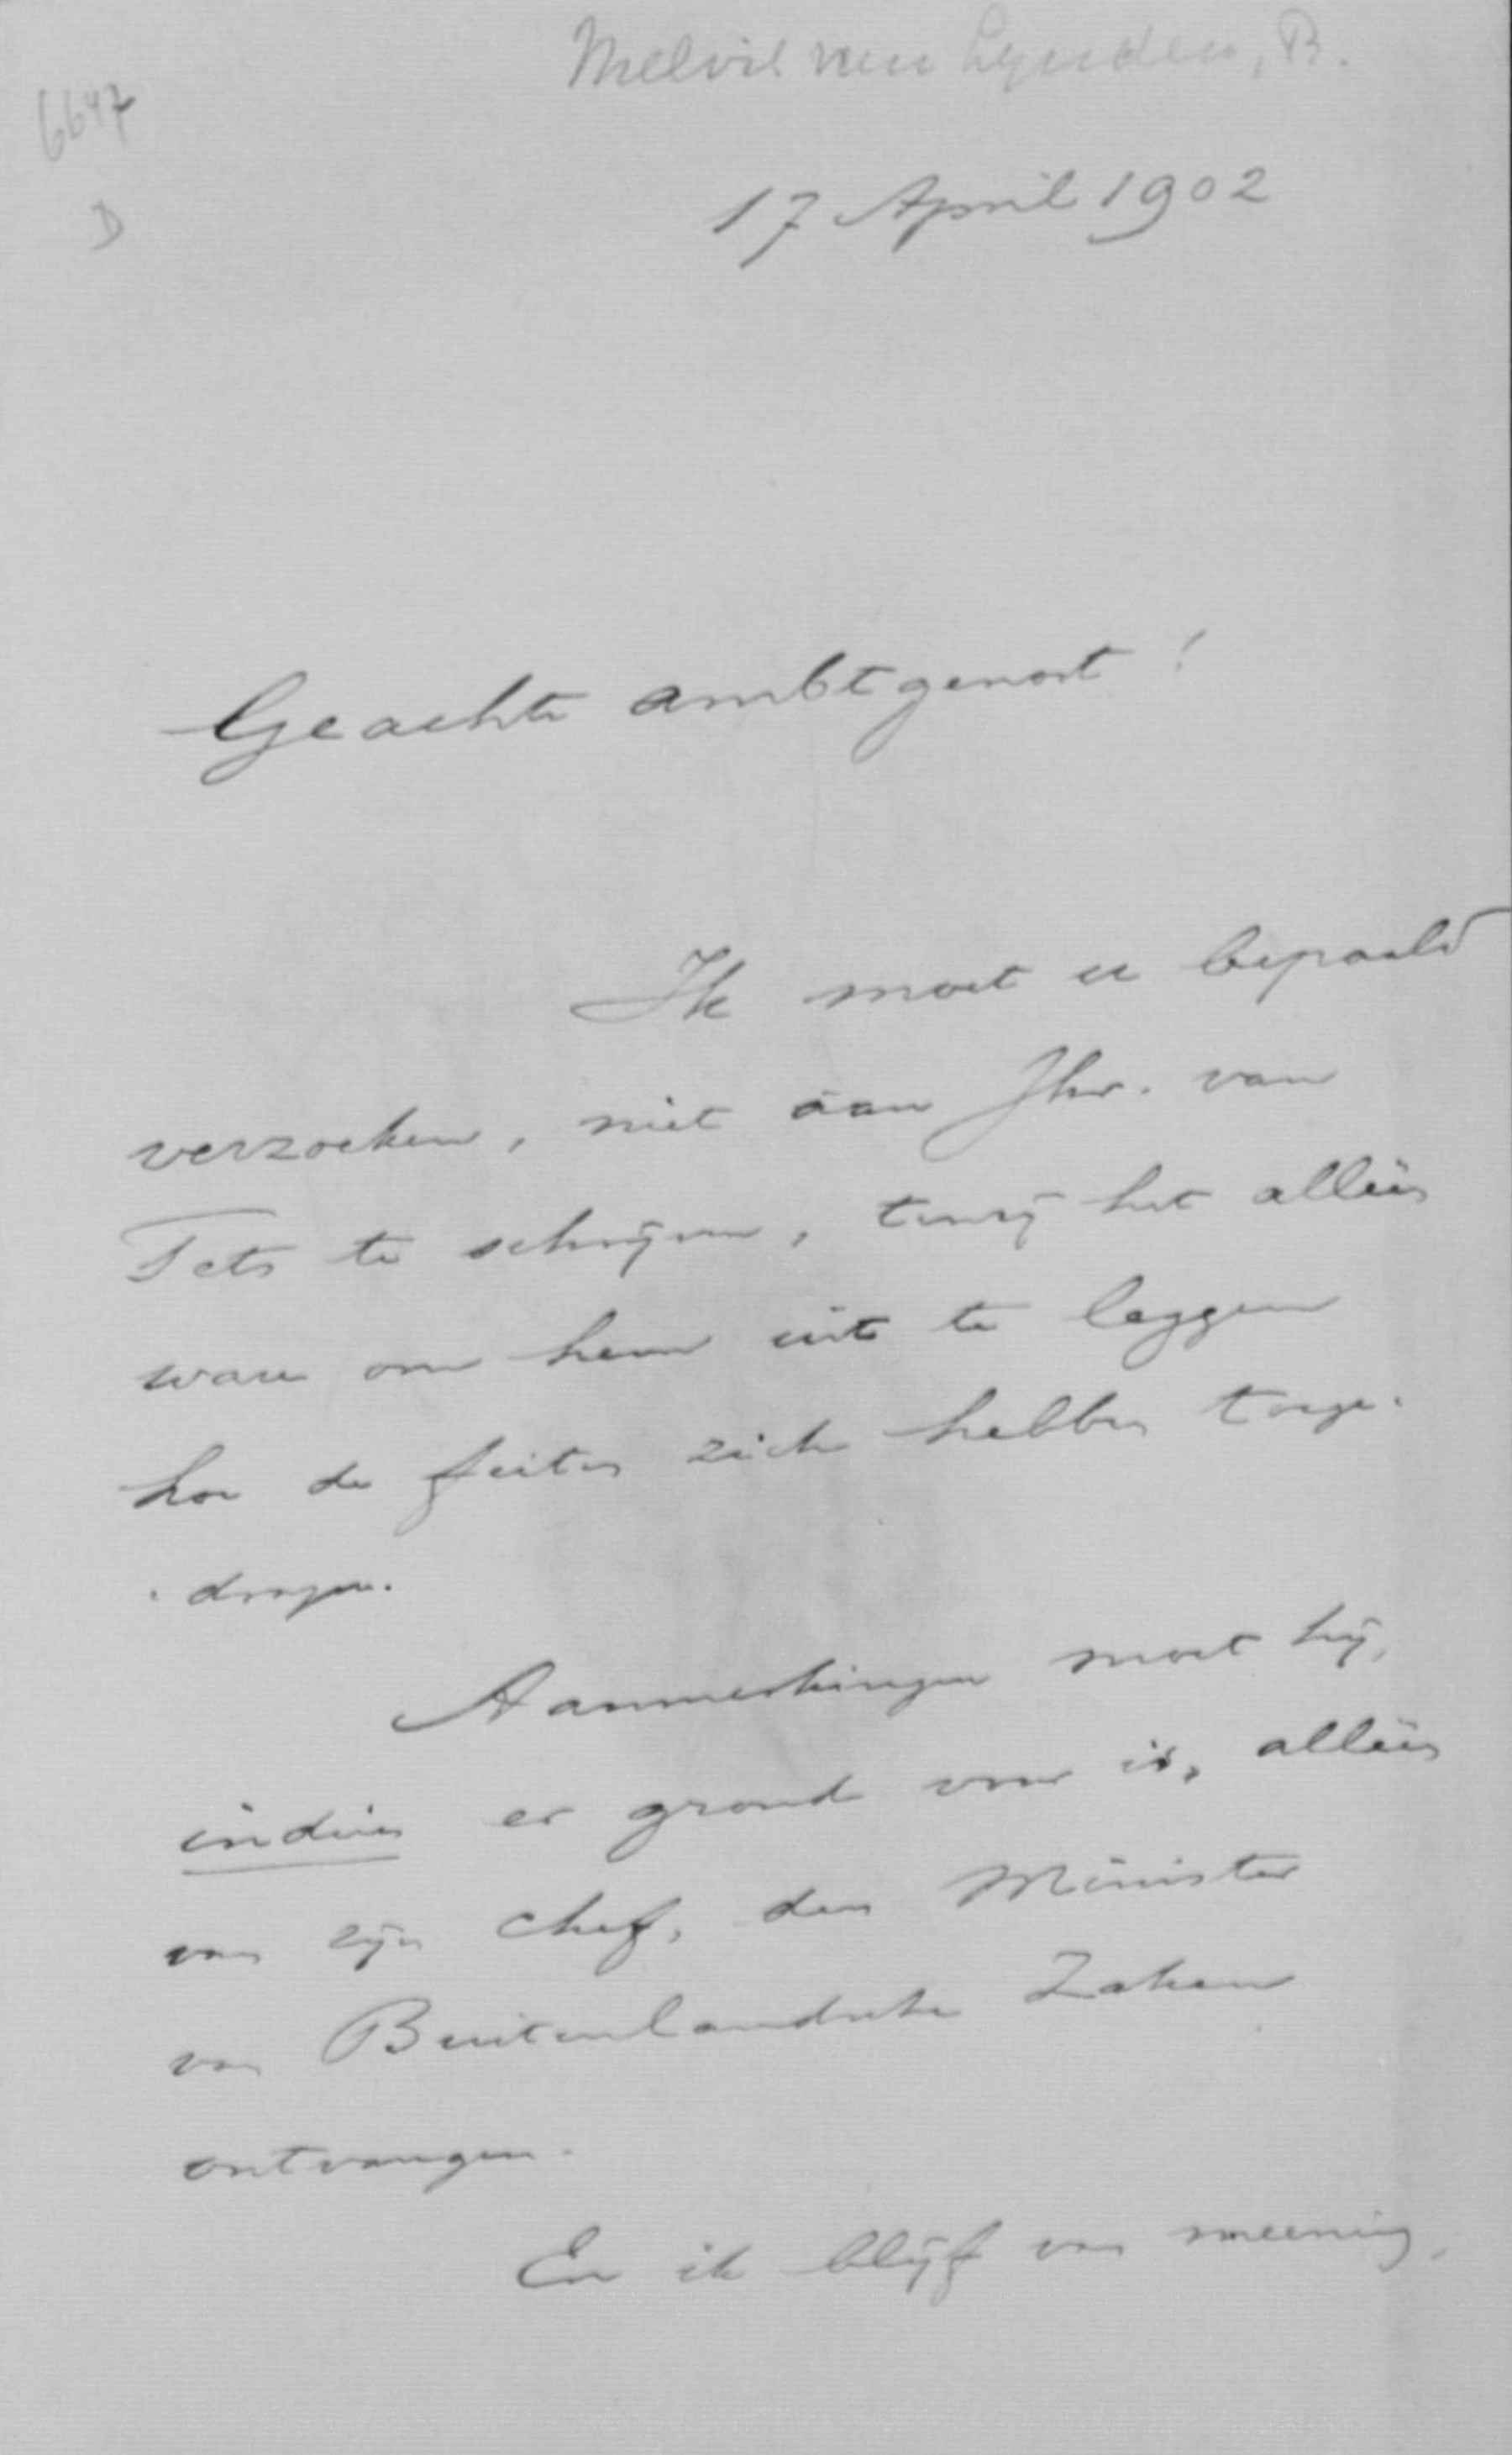 Melvil van Lynden, R.
6647
D
17 April 1902
Geachte ambtgenoot!
Ik moet u bepaald
verzoeken, niet aan Jhr. van
Tets te schrijven, tenzij het alleen
ware om hem uit te leggen
hoe de feiten zich hebben toege-
-dragen.
Aanmerkingen moet hij,
indien er grond voor is, alleen
van zijn chef, den Minister
van Buitenlandsche Zaken
ontvangen.
En ik blijf van meening,